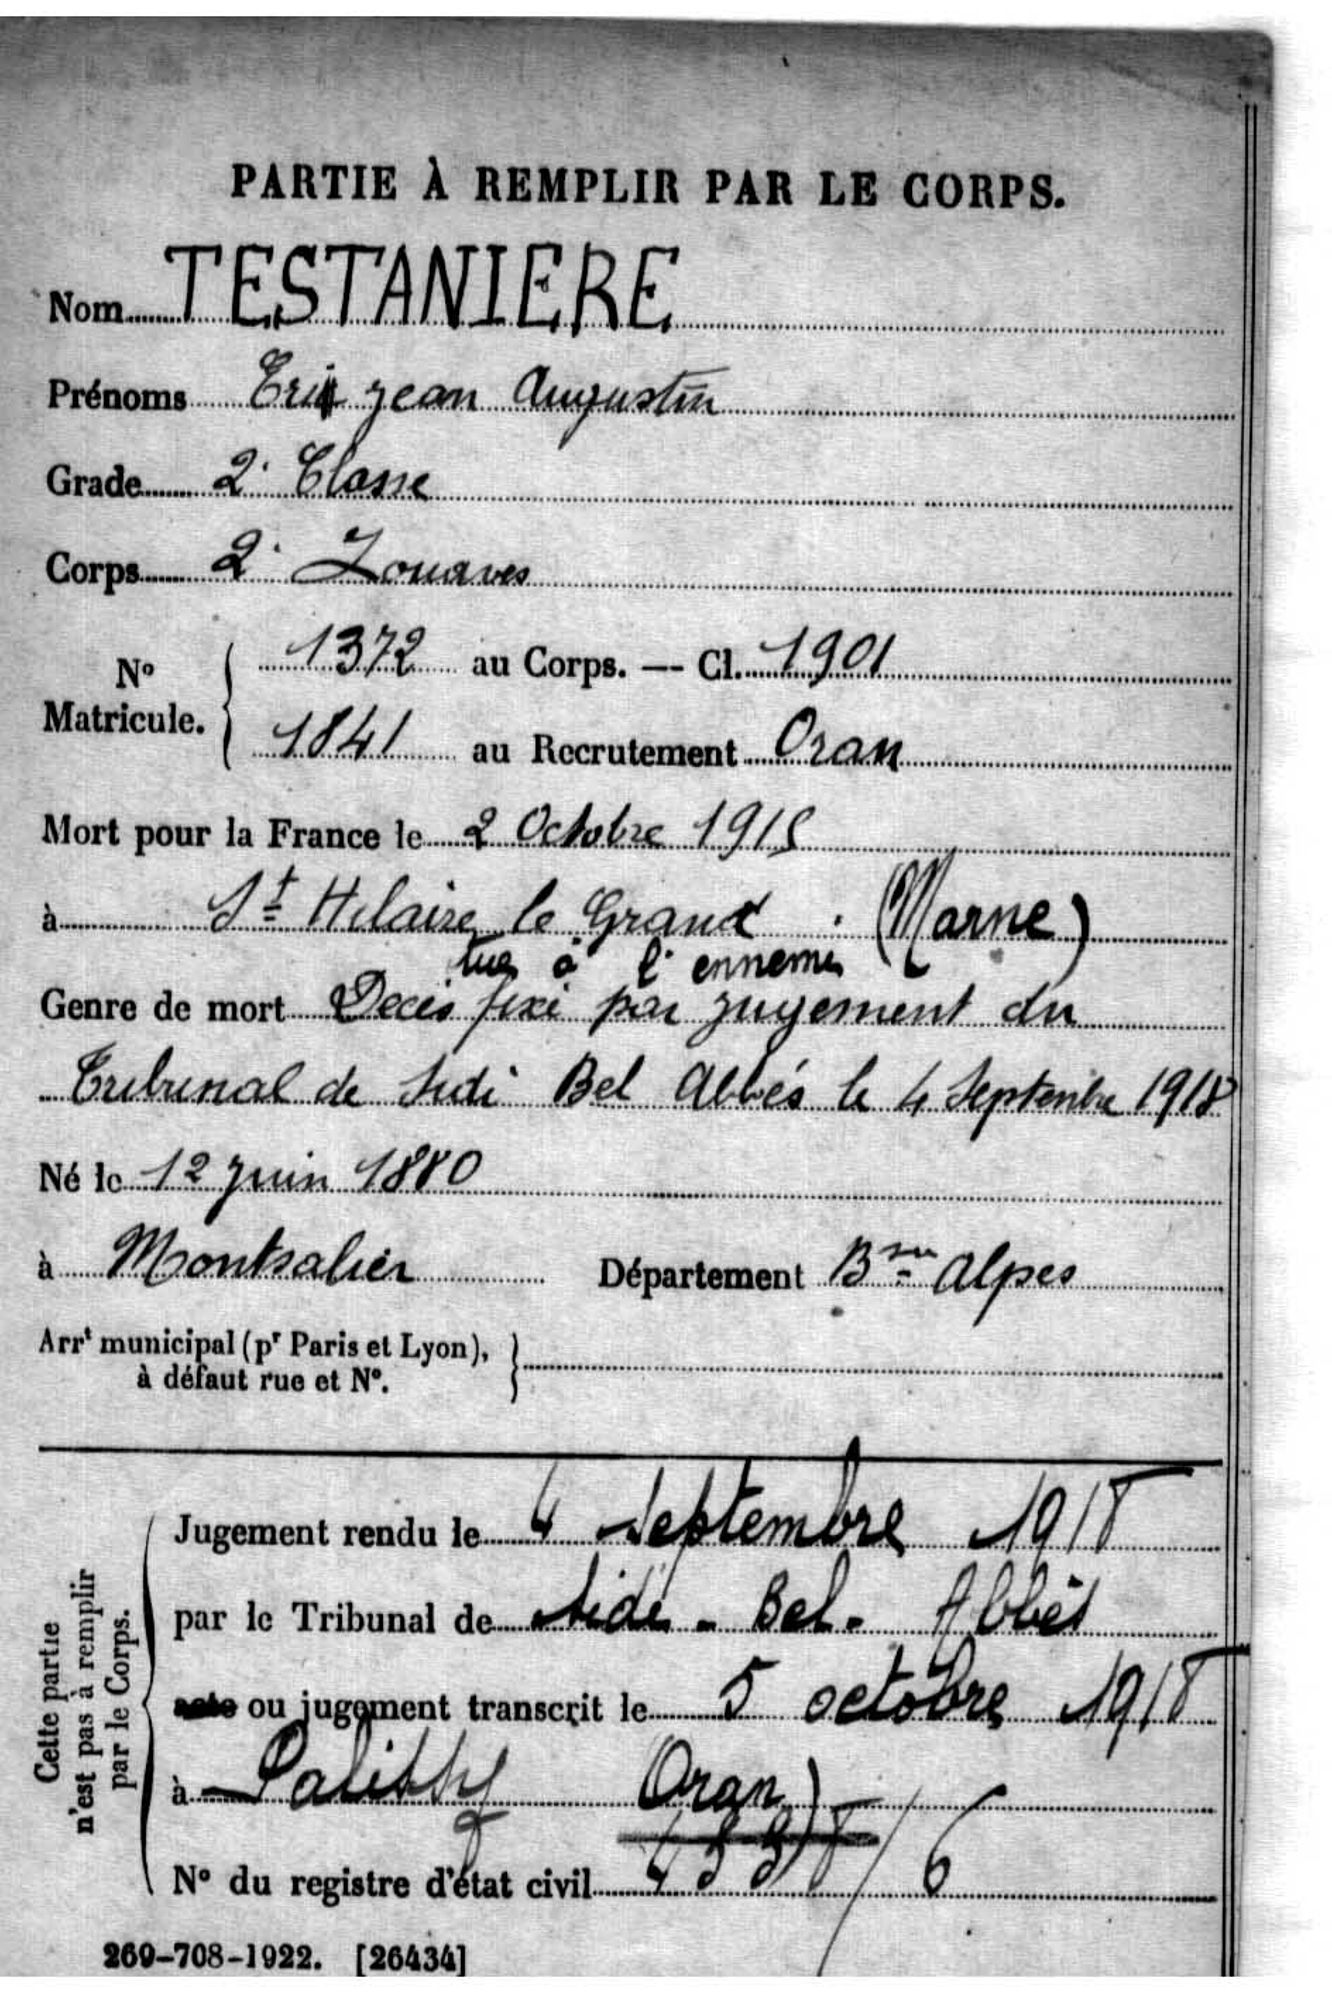 PARTIE À REMPLIR PAR LE CORPS.
Nom TESTANIERE
Prénoms Jean Augustin
Grade 2e Classe
Corps 2e Zouaves
No Matricule. 1372 au Corps. — Cl. 1901
1841 au Recrutement Oran
Mort pour la France le 2 Octobre 1915
à St Hilaire le Grand (Marne)
tué à l'ennemi
Genre de mort Décès fixé par jugement du
Tribunal de Sidi Bel Abbés le 4 Septembre 1918
Né le 12 juin 1880
à Montsalier Département Bses Alpes
Arrt municipal (pr Paris et Lyon),
à défaut rue et No.
Cette partie
n'est pas à remplir
par le Corps.
Jugement rendu le 4 Septembre 1918
par le Tribunal de Sidi - Bel - Abbès
acte ou jugement transcrit le 5 octobre 1918
à Palissy Oran)
No du registre d'état civil 6
269-708-1922. [26434]